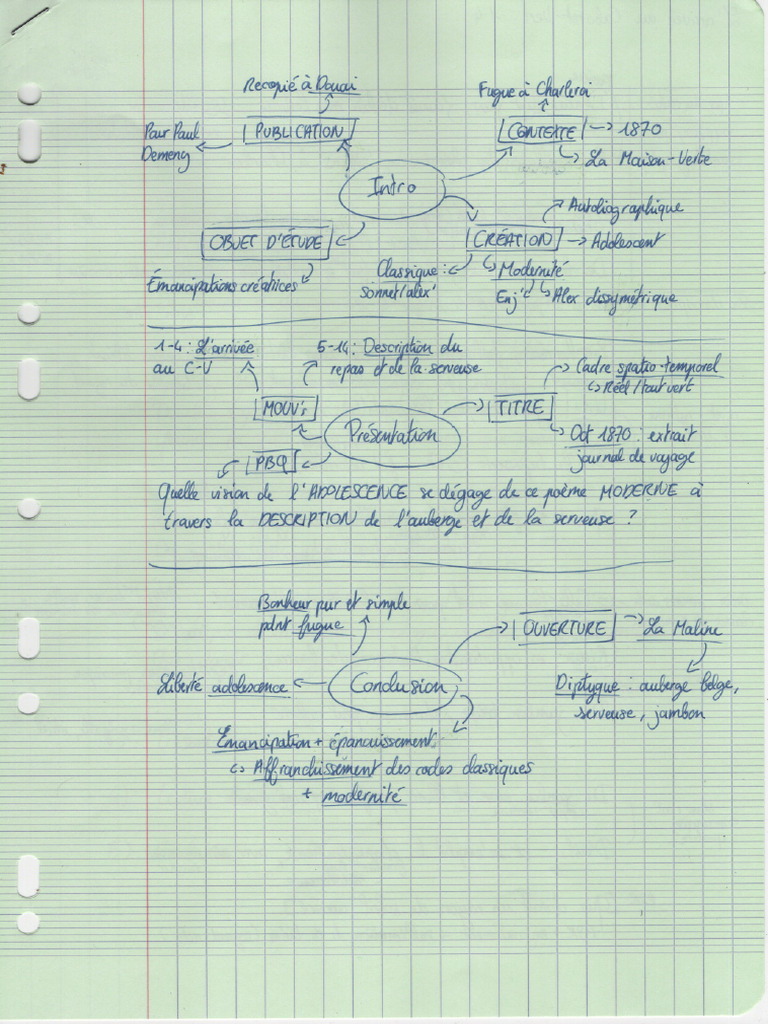 Recopié à Douai
Fugue à Charleroi
Pour Paul
Demeny
PUBLICATION
CONTEXTE
1870
La Maison-Verte
Intro
Autobiographique
OBJET D'ÉTUDE
CRÉATION
Adolescent
Émancipations créatrices
Classique :
sonnet/alex'
Modernité
Enj'
Alex dissymétrique
1-4 : L'arrivée
au C-V
5-14 : Description du
repas et de la serveuse
Cadre spatio-temporel
Réel/tout vert
MOUVts
TITRE
Présentation
Oct 1870 : extrait
journal de voyage
PBQ
Quelle vision de l'ADOLESCENCE se dégage de ce poème MODERNE à
travers la DESCRIPTION de l'auberge et de la serveuse ?
Bonheur pur et simple
pdnt fugue
OUVERTURE
La Maline
Liberté adolescence
Conclusion
Diptyque : auberge belge,
serveuse, jambon
Emancipation + épanouissement
Affranchissement des codes classiques
+ modernité